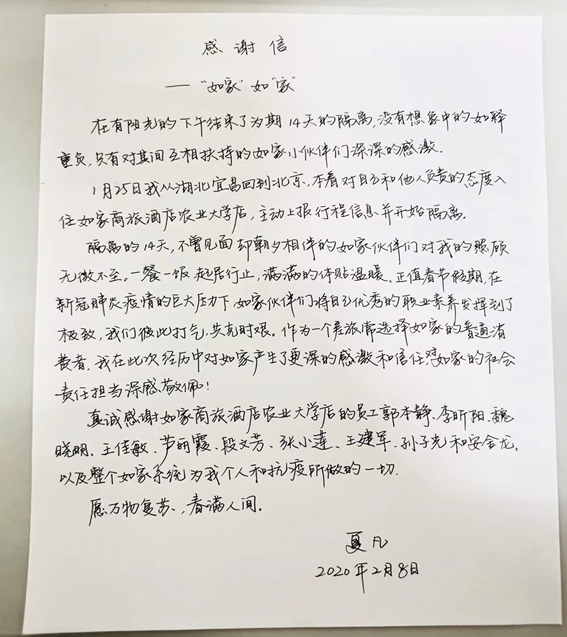 感谢信
——“如家”如“家”
在有阳光的下午结束了为期14天的隔离,没有想象中的如释
重负,只有对其间互相扶持的如家小伙伴们深深的感激.
1月25日我从湖北宜昌回到北京,本着对自己和他人负责的态度入
住如家商旅酒店农业大学店,主动上报行程信息并开始隔离.
隔离的14天,不曾见面却朝夕相伴的如家伙伴们对我的照顾
无微不至.一餐一饭,起居行止,满满的体贴温暖.正值春节假期,在
新冠肺炎疫情的巨大压力下,如家伙伴们将自己优秀的职业素养发挥到了
极致,我们彼此打气,共克时艰。作为一个差旅常选择如家的普通消
费者,我在此次经历中对如家产生了更深的感激和信任,对如家的社会
责任担当深感敬佩!
真诚感谢如家商旅酒店农业大学店的员工郭本静、李昕阳、魏
晓明、王佳敏、芦丽霞、段文芳、张小莲、王建军、孙子光和安金龙,
以及整个如家系统为我个人和抗疫所做的一切.
愿万物复苏,春满人间。
夏凡
2020年2月8日